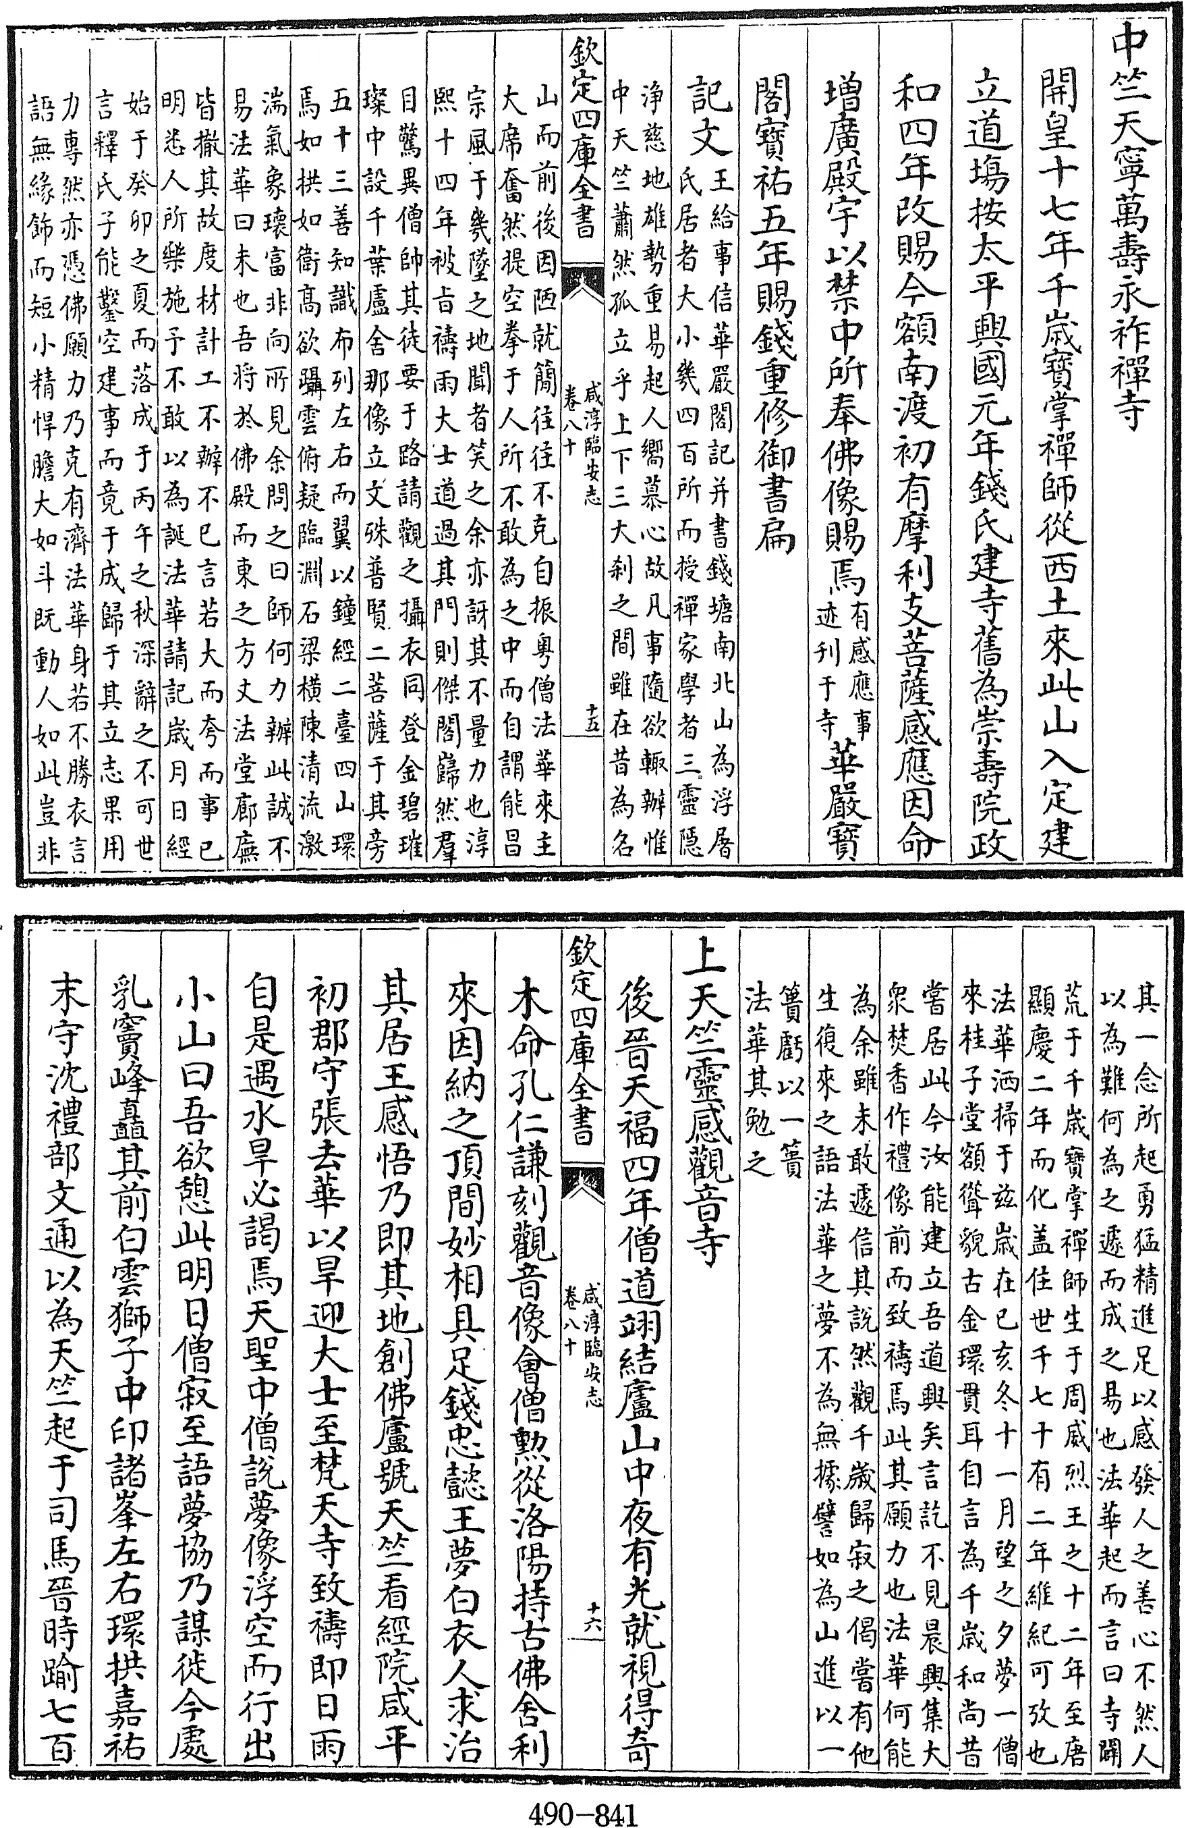 中竺天寧萬壽永祚禪寺
開皇十七年千歲寶掌禪師從西土來此山入定建
立道塲按太平興國元年錢氏建寺舊為崇壽院政
和四年改賜今額南渡初有摩利支菩薩感應因命
增廣殿宇以禁中所奉佛像賜焉有感應事
迹刋于寺華嚴寶
閣寶祐五年賜錢重修御書扁
記文王給事信華嚴閣記并書錢塘南北山為浮屠
氏居者大小幾四百所而授禪家學者三靈隱
淨慈地雄勢重易起人嚮慕心故凡事隨欲輙辦惟
中天竺蕭然孤立乎上下三大刹之間雖在昔為名
欽定四庫全書
咸淳臨安志
卷八十
十五
山而前後因陋就簡往往不克自振粤僧法華來主
大席奮然提空拳于人所不敢為之中而自謂能昌
宗風于幾墜之地聞者笑之余亦訝其不量力也淳
熙十四年被㫖禱雨大士道過其門則傑閣巋然羣
目驚異僧帥其徒要于路請觀之攝衣同登金碧璀
璨中設千葉盧舍那像立文殊普賢二菩薩于其旁
五十三善知識布列左右而翼以鐘經二臺四山環
焉如拱如衛髙欲躡雲俯疑臨淵石梁橫陳清流激
湍氣象瓌富非向所見余問之曰師何力辦此誠不
易法華曰未也吾将於佛殿而東之方丈法堂廊廡
皆撤其故度材計工不辦不已言若大而夸而事已
明悉人所樂施予不敢以為誕法華請記歲月日經
始于癸卯之夏而落成于丙午之秋深辭之不可世
言釋氏子能鑿空建事而竟于成歸于其立志果用
力專然亦憑佛願力乃克有濟法華身若不勝衣言
語無緣飾而短小精悍膽大如斗既動人如此豈非
其一念所起勇猛精進足以感發人之善心不然人
以為難何為之遽而成之易也法華起而言曰寺闢
荒于千歲寶掌禪師生于周威烈王之十二年至唐
顯慶二年而化盖住世千七十有二年維紀可攷也
法華洒掃于兹歲在已亥冬十一月望之夕夢一僧
來桂子堂額聳貌古金環貫耳自言為千歲和尚昔
嘗居此今汝能建立吾道興矣言訖不見晨興集大
衆焚香作禮像前而致禱焉此其願力也法華何能
為余雖未敢遽信其說然觀千歲歸寂之偈嘗有他
生復來之語法華之夢不為無據譬如為山進以一
簣虧以一簣
法華其勉之
上天竺靈感觀音寺
後晉天福四年僧道翊結廬山中夜有光就視得奇
欽定四庫全書
咸淳臨安志
卷八十
十六
木命孔仁謙刻觀音像會僧勲從洛陽持古佛舍利
來因納之頂間妙相具足錢忠懿王夢白衣人求治
其居王感悟乃即其地創佛廬號天竺看經院咸平
初郡守張去華以旱迎大士至梵天寺致禱即日雨
自是遇水旱必謁焉天聖中僧說夢像浮空而行出
小山曰吾欲憩此明日僧寂至語夢協乃謀徙今處
乳竇峰矗其前白雲獅子中印諸峯左右環拱嘉祐
末守沈禮部文通以為天竺起于司馬晉時踰七百
490-841